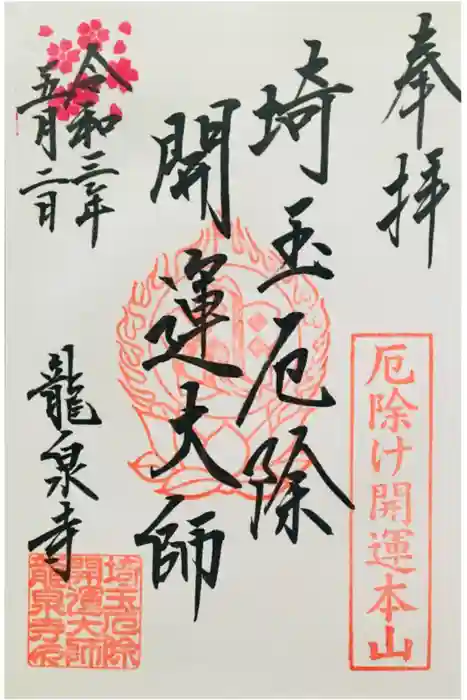 奉拝
厄除け開運本山
埼玉厄除
開運大師
令和三年
五月二日
龍泉寺
埼玉厄除
開運大師
龍泉寺印